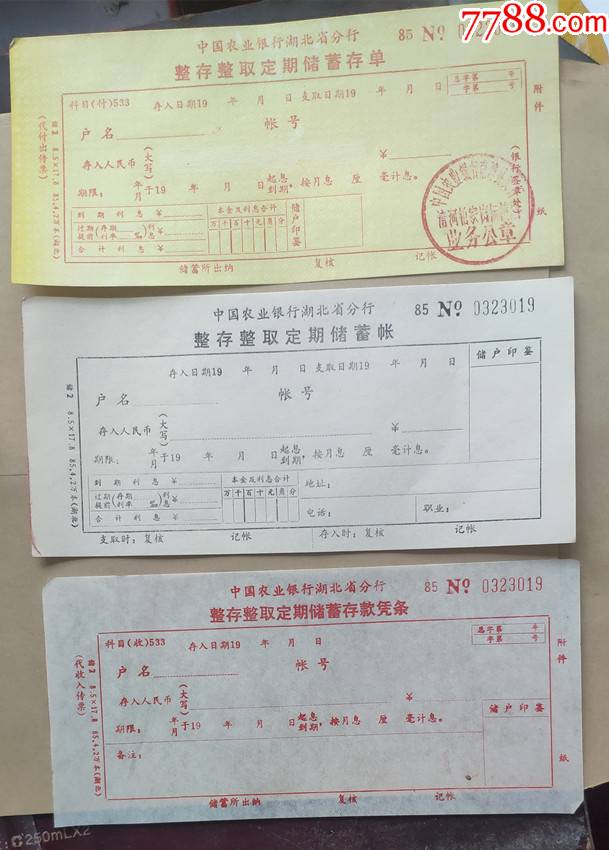 7788.com
中国农业银行湖北省分行
85 № 0323019
整存整取定期储蓄存单
总字第 号
字第 号
科目(付)533 存入日期19 年 月 日支取日期19 年 月 日
附件
户名 帐号
(代付出传票)
储2 8.5×17.8 85.4.2万本(湖北)
存入人民币(大写) ¥
(银行签章处)
期限: 年月于19 年 月 日起息到期,按月息 厘 毫计息。
到期利息¥
本金及利息合计
储户印鉴
过期(存期 )利
提前(利率 ‰)息¥
万千百十元角分
合计利息¥
业务公章
纸
储蓄所出纳 复核 记帐
中国农业银行湖北省分行
85 № 0323019
整存整取定期储蓄帐
储户印鉴
存入日期19 年 月 日支取日期19 年 月 日
户名 帐号
储2 8.5×17.8 85.4.2万本(湖北)
存入人民币(大写) ¥
期限: 年月于19 年 月 日起息到期,按月息 厘 毫计息。
到期利息¥
本金及利息合计
地址:
过期(存期 )利
提前(利率 ‰)息¥
万千百十元角分
合计利息¥
电话: 职业:
支取时:复核 记帐 存入时:复核 记帐
中国农业银行湖北省分行
85 № 0323019
整存整取定期储蓄存款凭条
总字第 号
字第 号
科目(收)533 存入日期19 年 月 日
附件
户名 帐号
(代收入传票)
储2 8.5×17.8 85.4.2万本(湖北)
存入人民币(大写) ¥
储户印鉴
期限: 年月于19 年 月 日起息到期,按月息 厘 毫计息。
备注:
纸
储蓄所出纳 复核 记帐
250mLX2